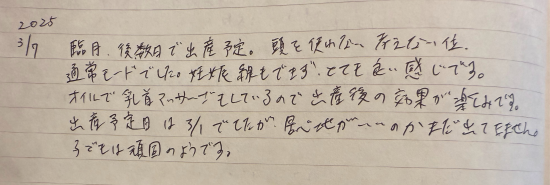 2025
3/7 臨月。後数日で出産予定。頭を使わない 考えない位、
通常モードでした。妊娠線もできず、とても良い感じです。
オイルで乳首マッサージをしているので出産後の効果が楽しみです。
出産予定日は3/1でしたが、居心地がいいのかまだ出てきません。
子どもは頑固のようです。